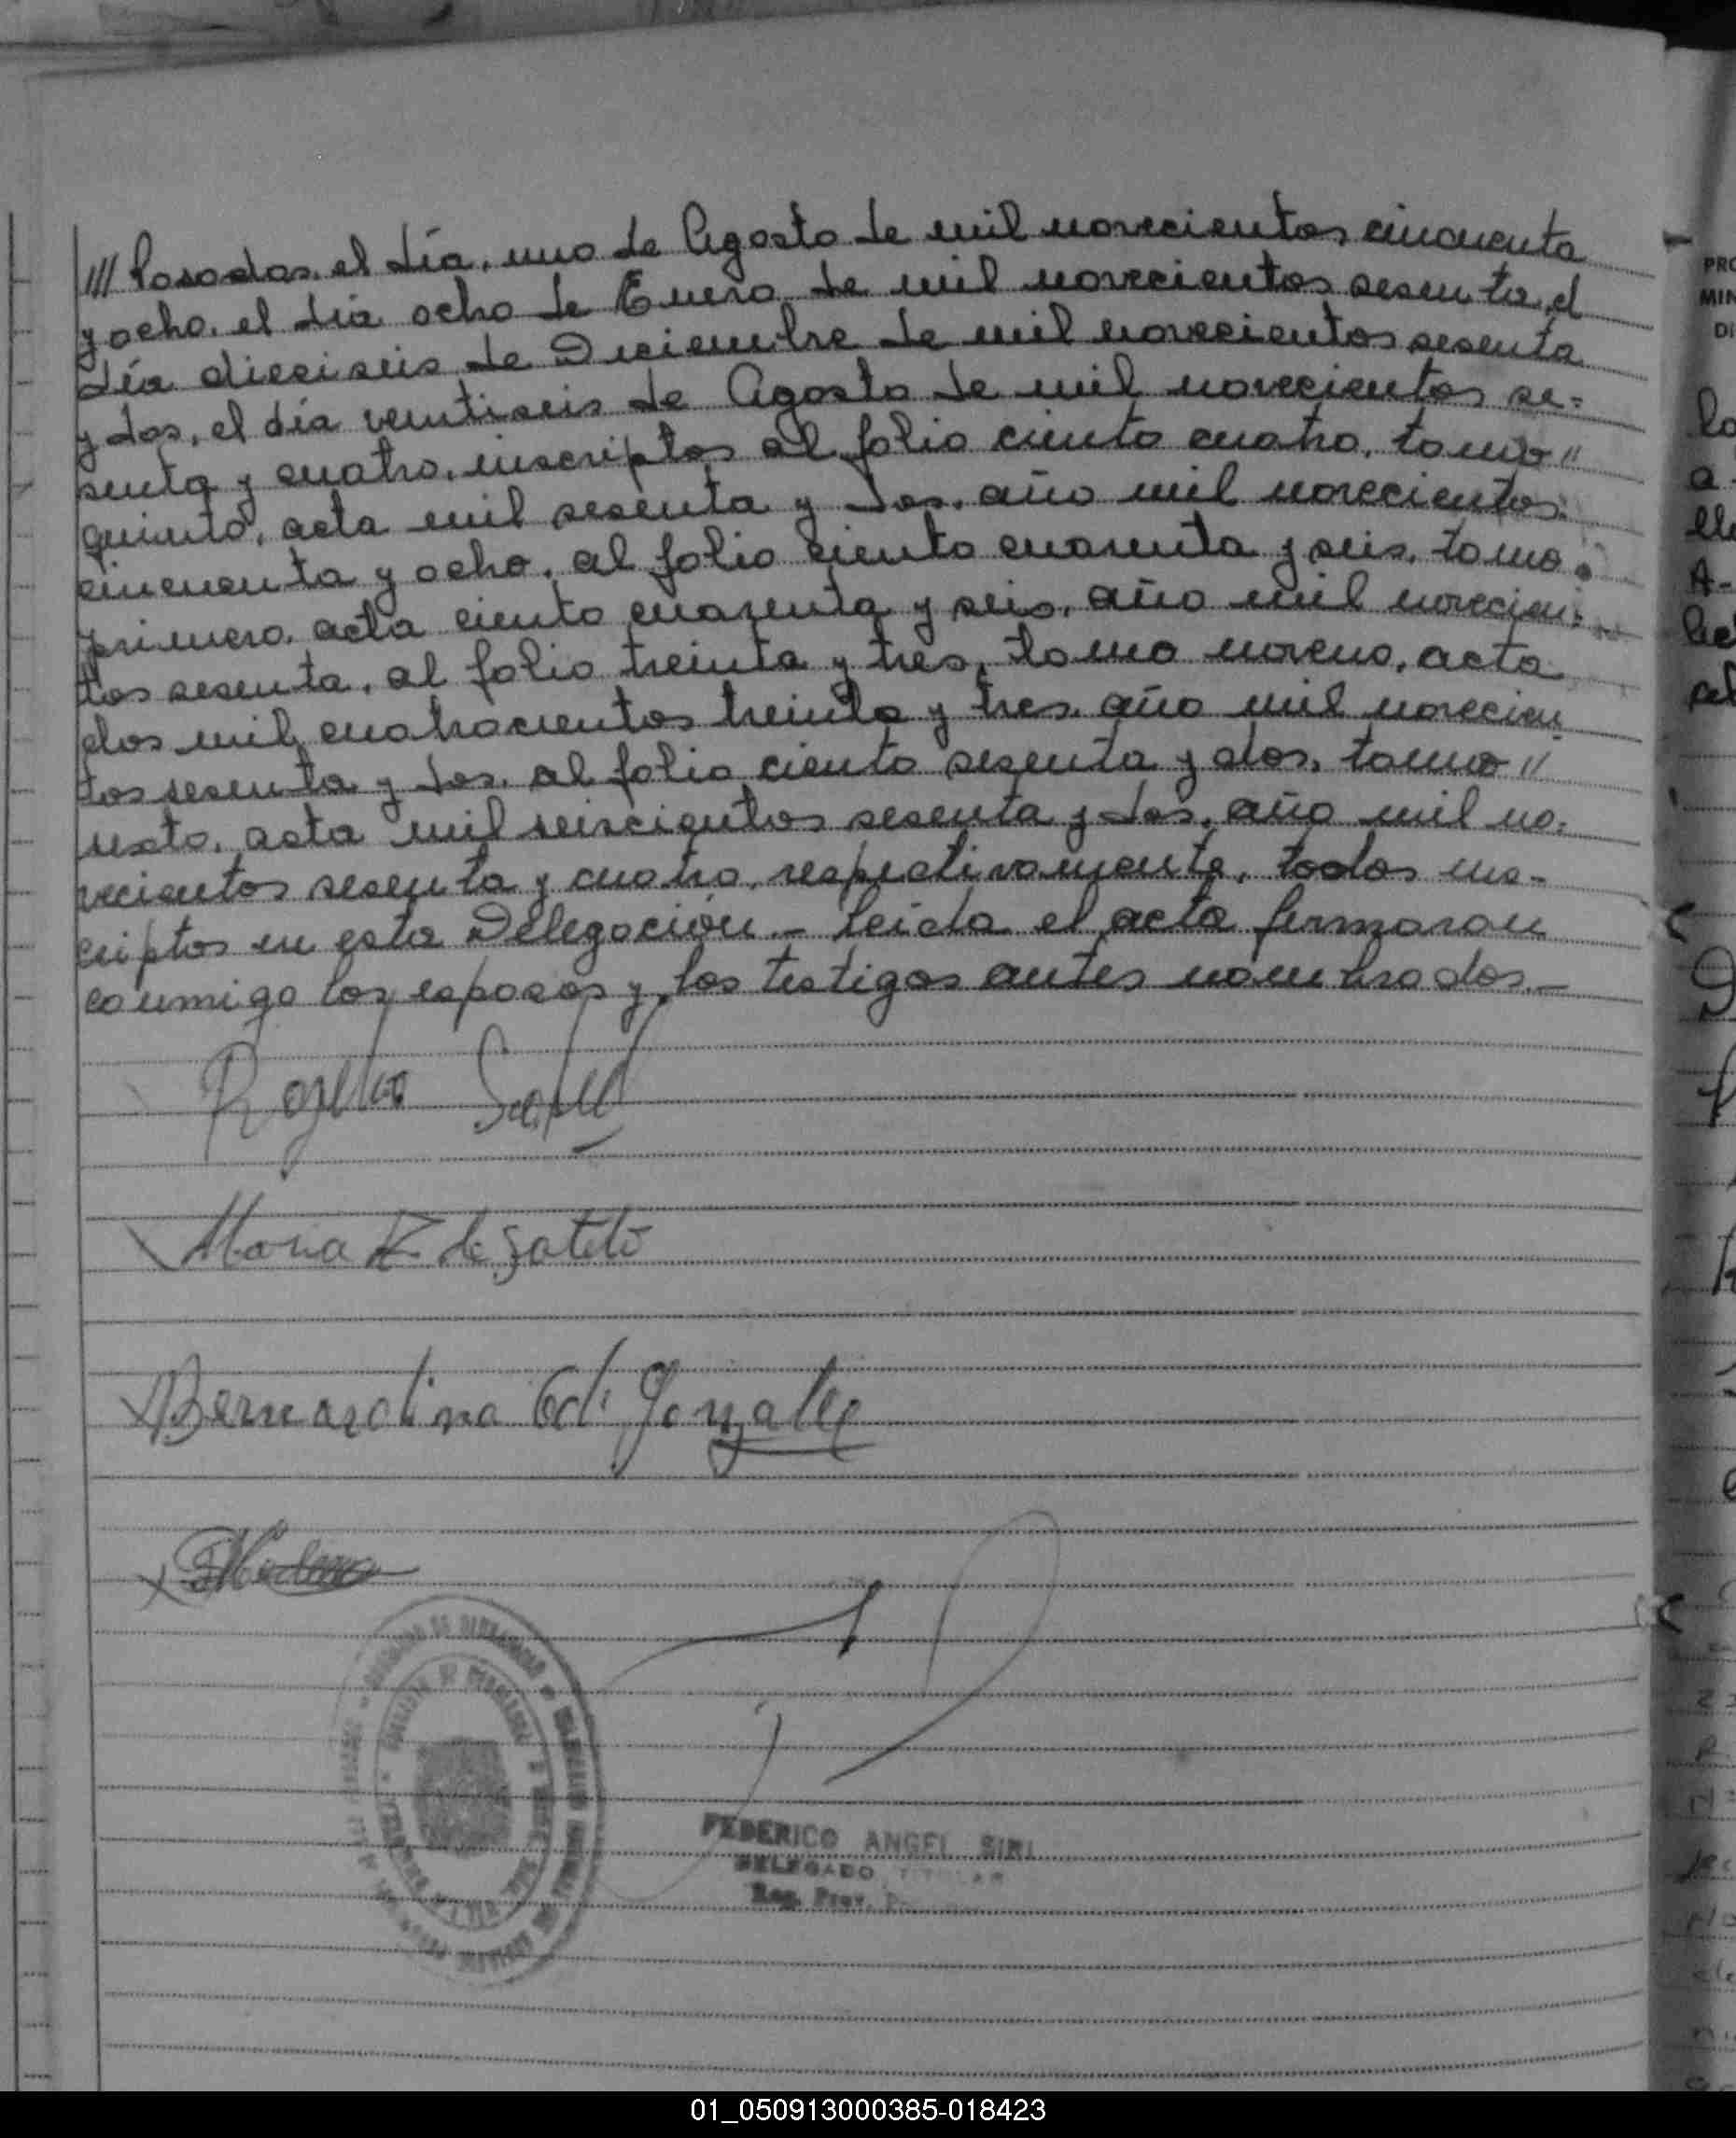 /// Posadas, el día, uno de Agosto de mil novecientos cincuenta
y ocho, el día ocho de Enero de mil novecientos sesenta, el
día dieciseis de Diciembre de mil novecientos sesenta
y dos, el día ventiseis de Agosto de mil novecientos se=
senta y cuatro, inscriptos al folio ciento cuatro, tomo "
quinto, acta mil sesenta y dos, año mil novecientos
cincuenta y ocho, al folio ciento cuarenta y seis, tomo
primero, acta ciento cuarenta y seis, año mil novecien=
tos sesenta, al folio treinta y tres, tomo noveno, acta
dos mil cuatrocientos treinta y tres, año mil novecien
tos sesenta y dos, al folio ciento sesenta y dos, tomo "
sexto, acta mil seiscientos sesenta y dos, año mil no-
vecientos sesenta y cuatro, respectivamente, todos ins-
criptos en esta Delegación.- Leída el acta firmaron
conmigo los esposos y los testigos antes nombrados.-
Maria Z de Sotelo
Bernardina G di Gonzalez
FEDERICO ANGEL SIRI
DELEGADO TITULAR
Reg. Prov.
PRO
MIN
DI
01_050913000385-018423